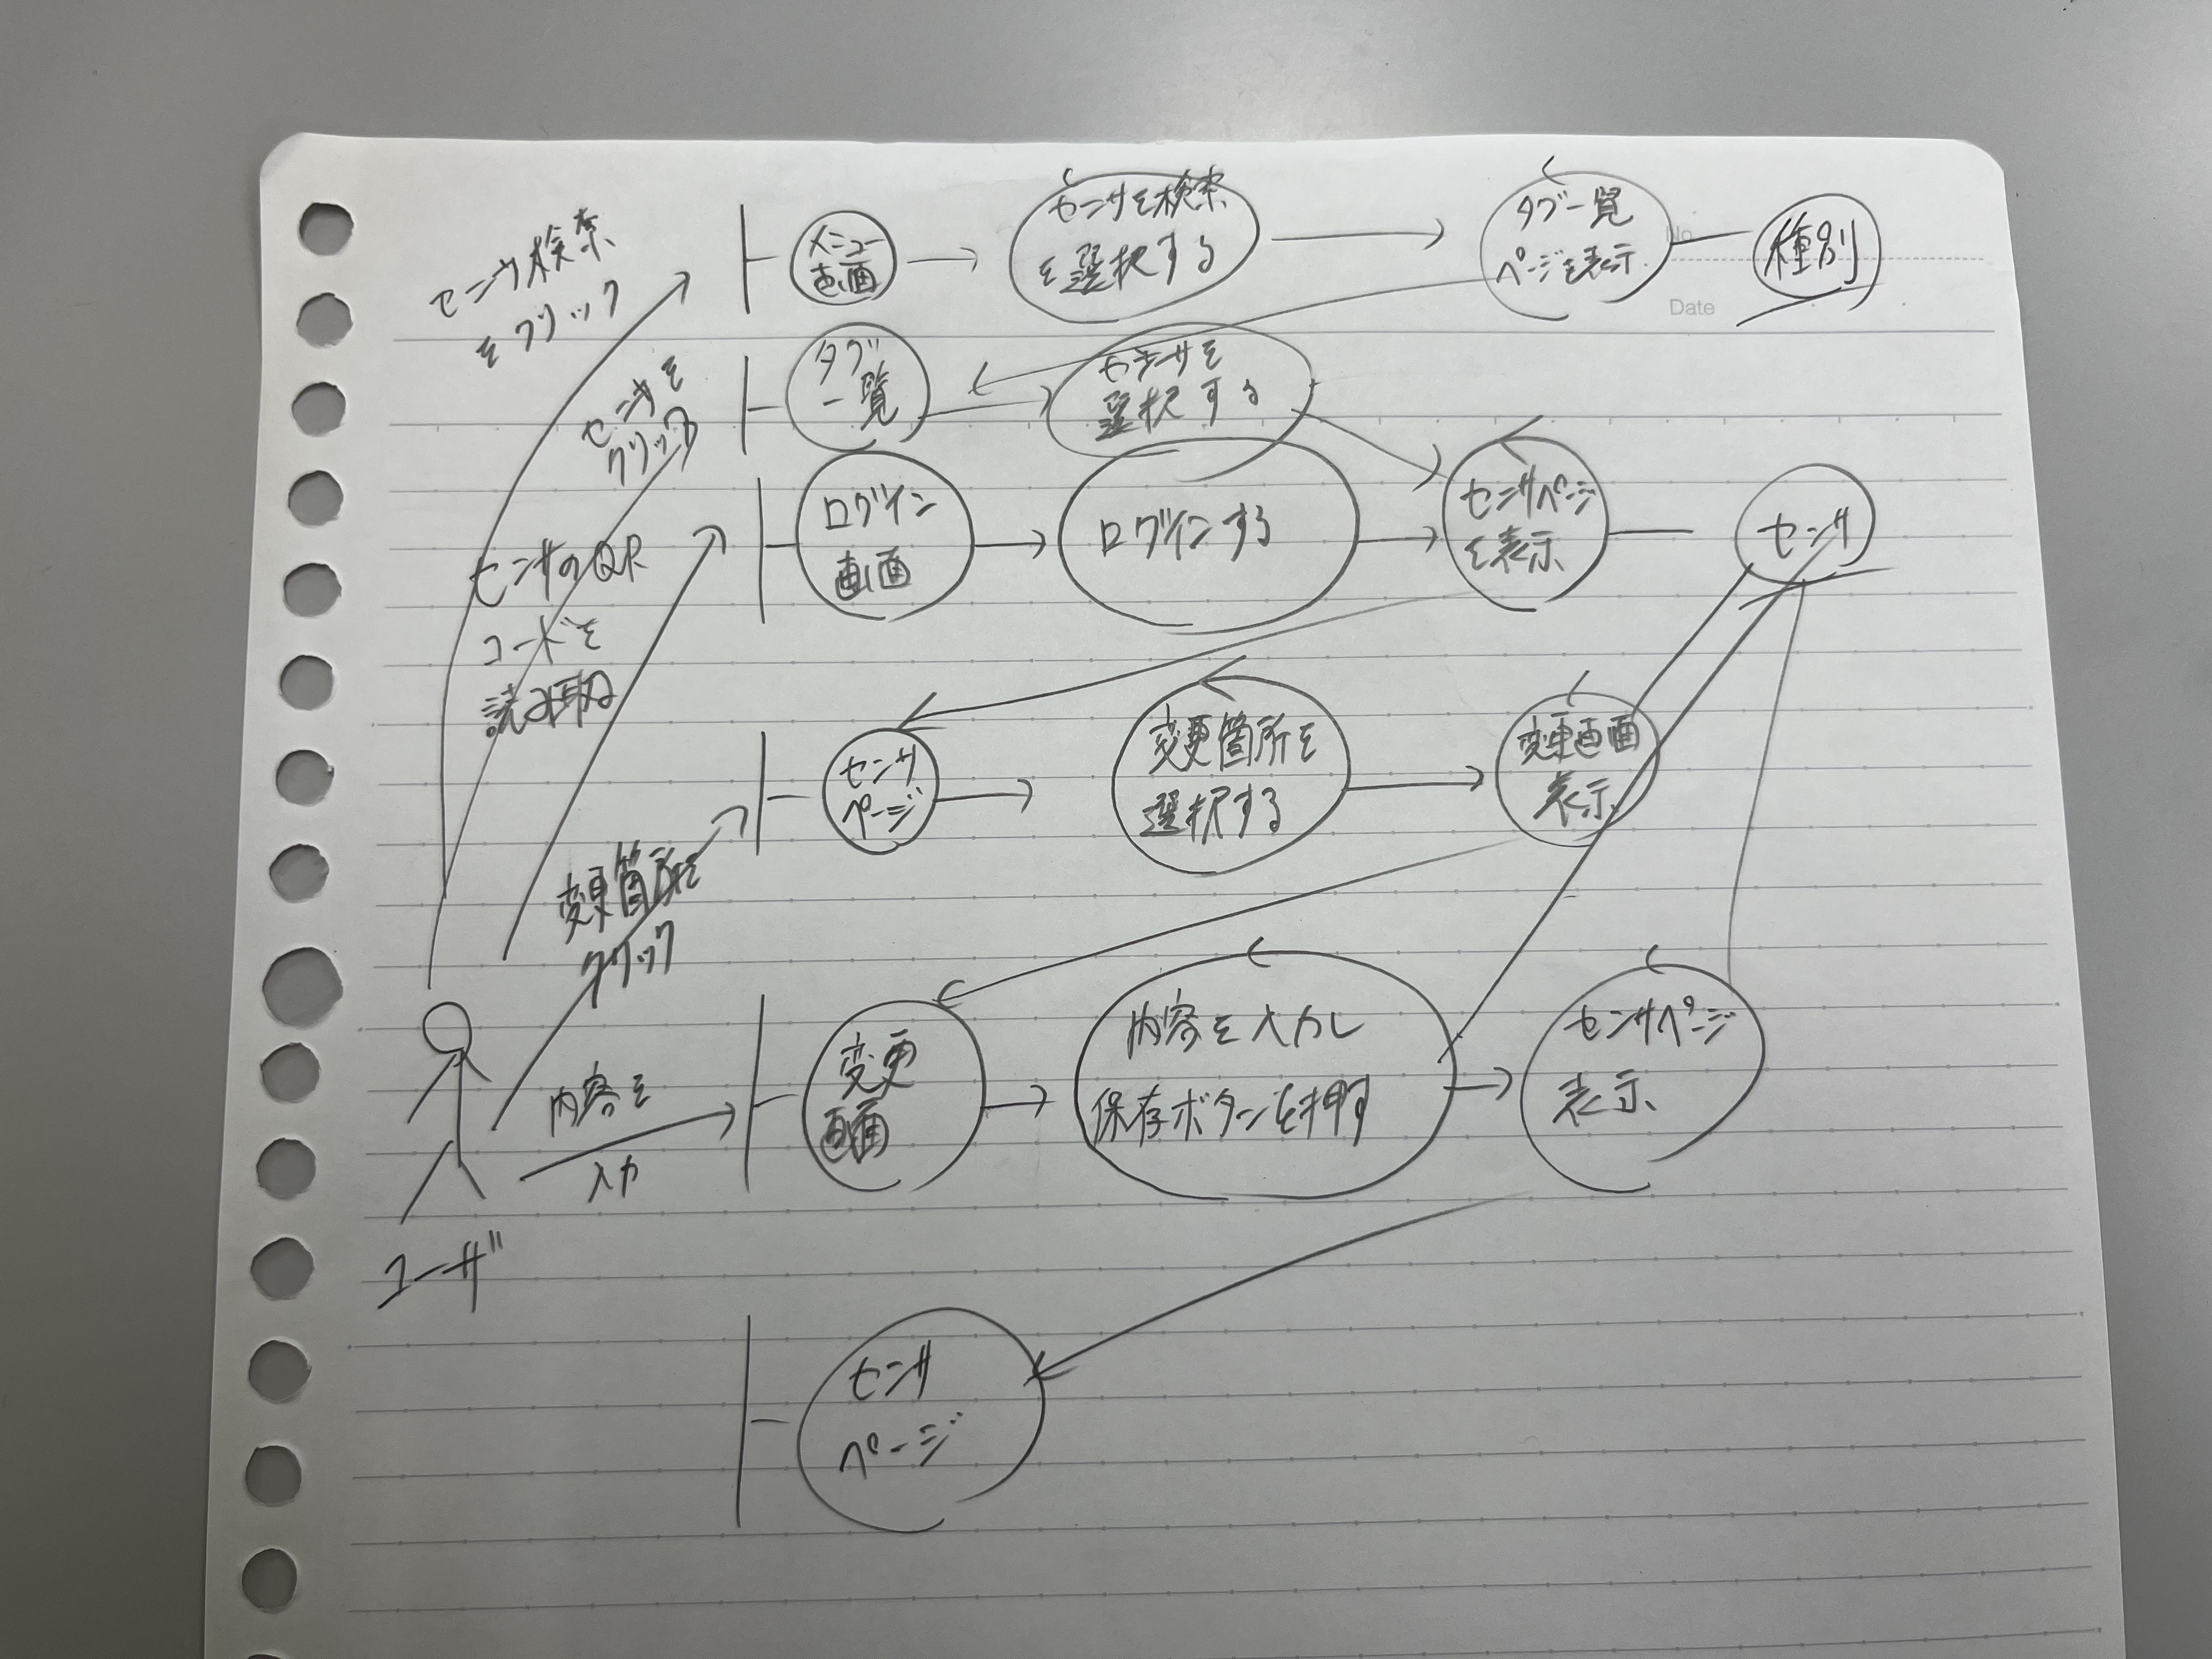 センサ検索
をクリック
メニュー
画面
センサを検索
を選択する
タブ一覧
ページを表示
種別
No.
Date
センサを
クリック
タブ
一覧
センサを
選択する
センサのQR
コードを
読み取る
ログイン
画面
ログインする
センサページ
を表示
センサ
変更箇所を
クリック
センサ
ページ
変更箇所を
選択する
変更画面
表示
内容を
入力
変更
画面
内容を入力し
保存ボタンを押す
センサページ
表示
ユーザ
センサ
ページ